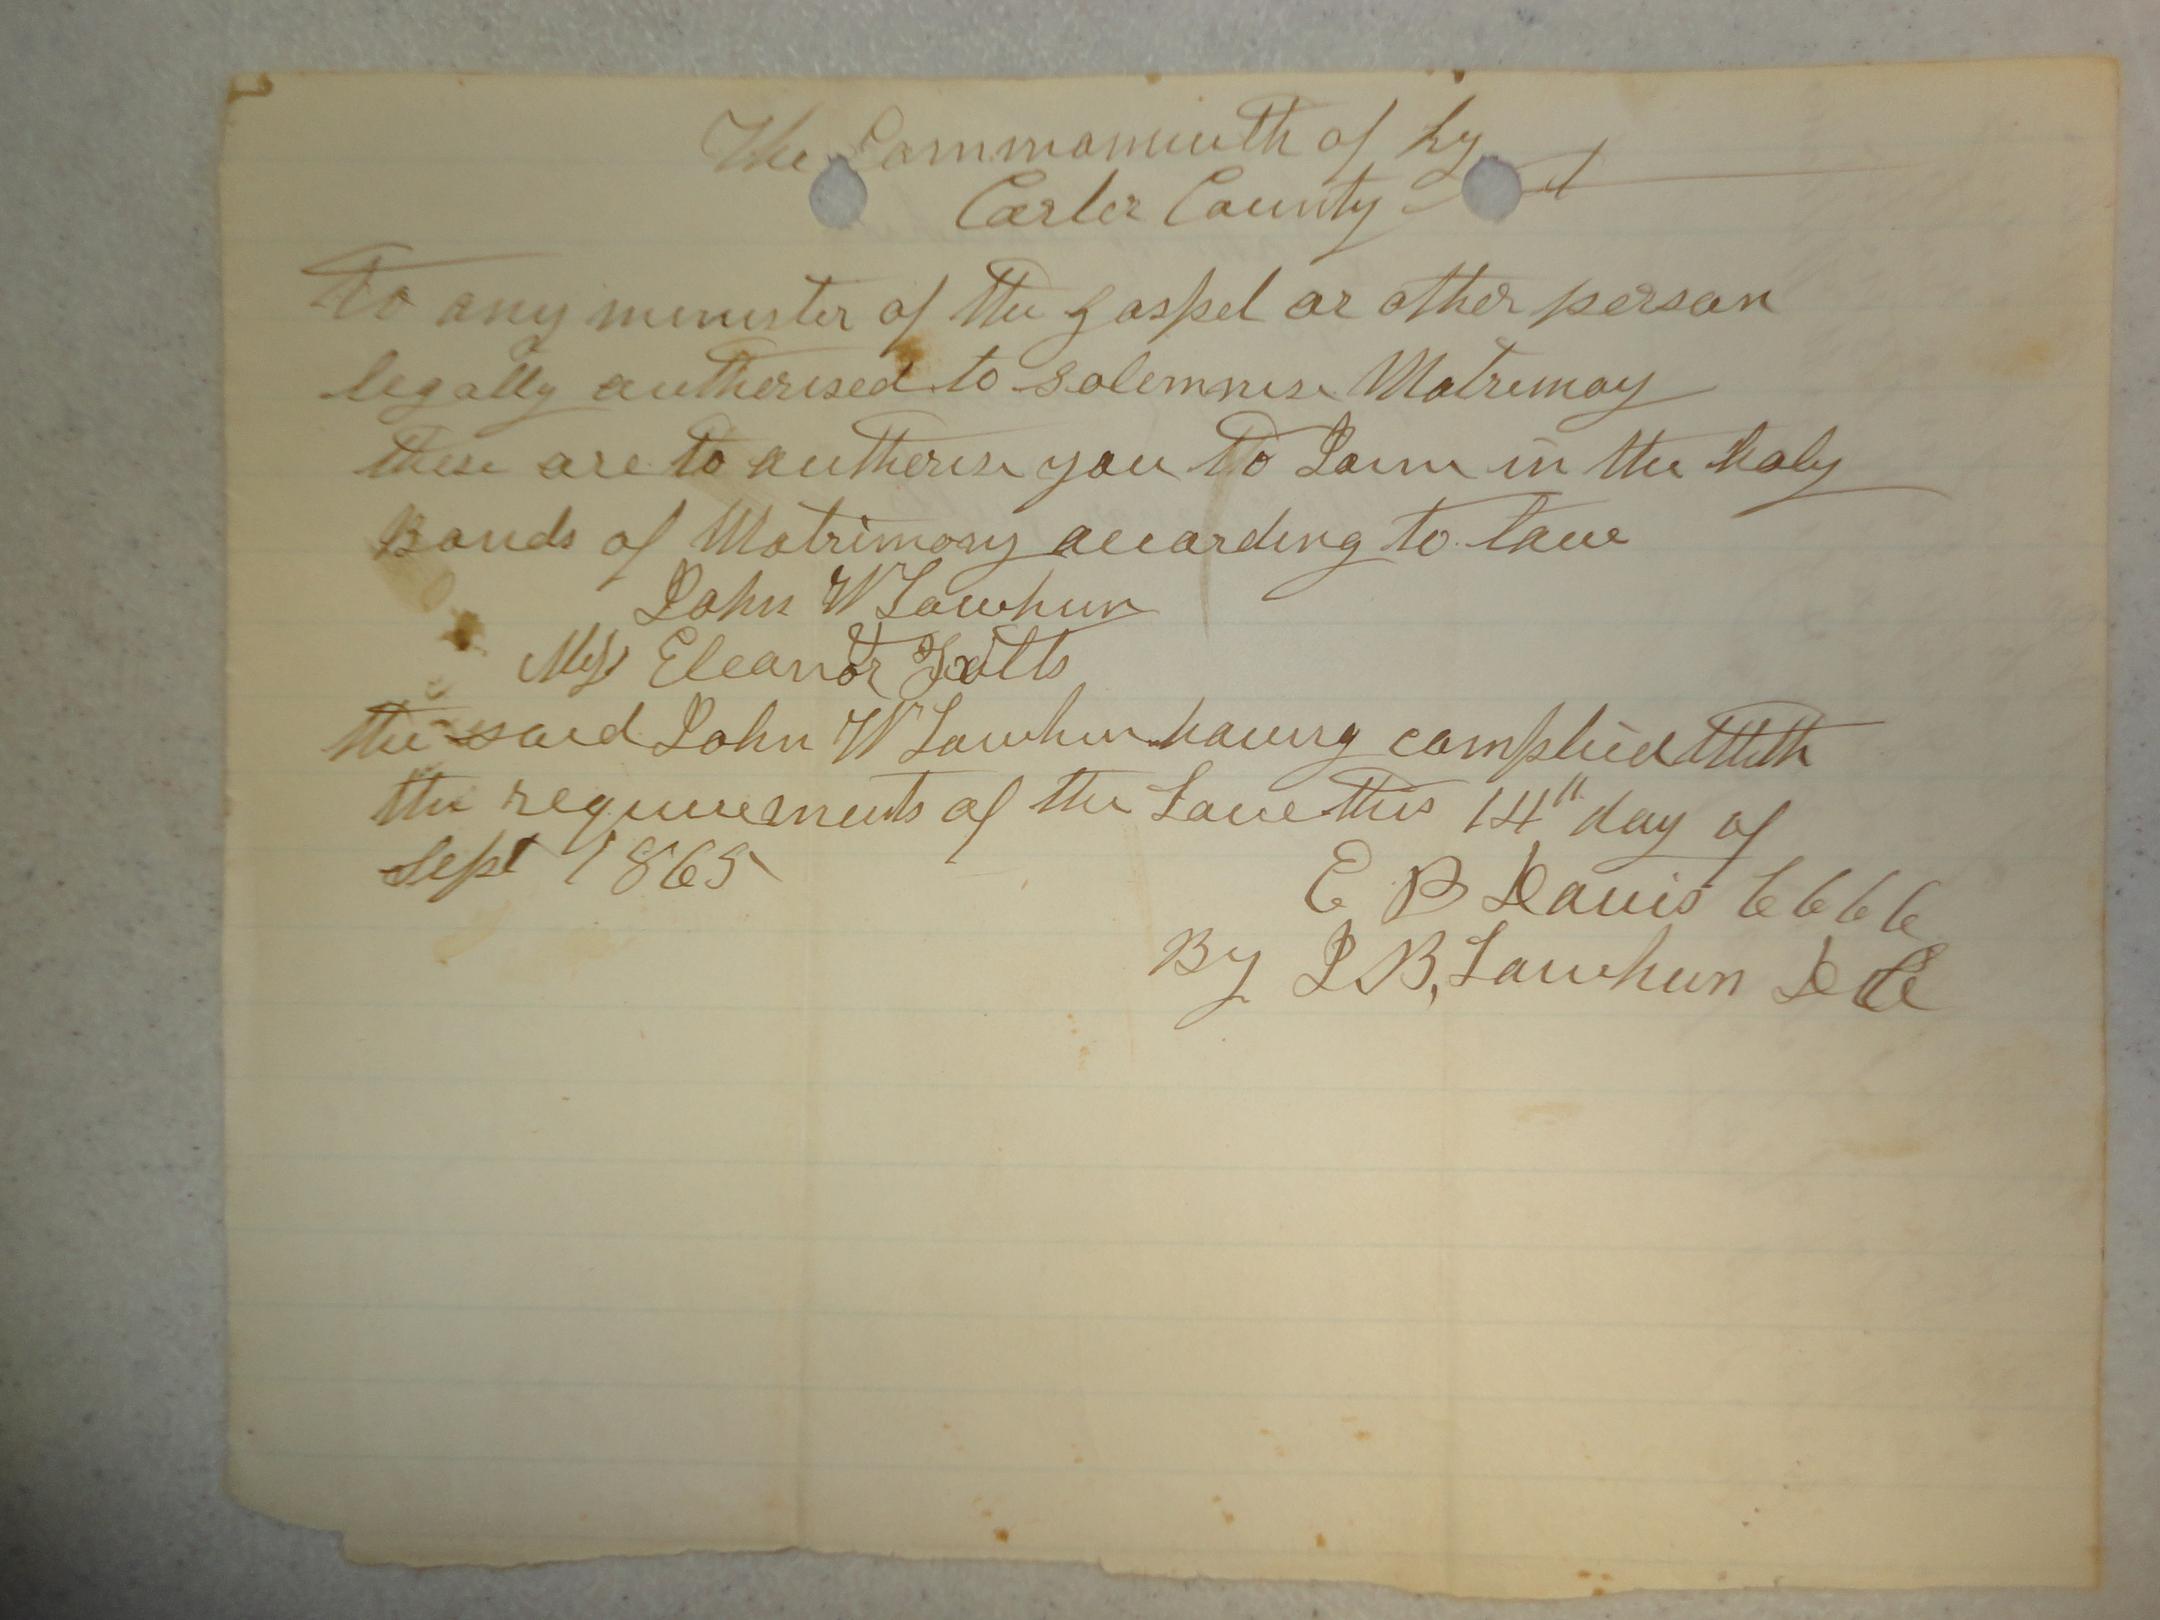 The Commonwelth of Ky
Carter County
To any minister of the gospel or other person
legally autherised to solemnise Matrimoy
these are to autherise you to Join in the holy
Bands of Matrimony according to law
John W Lawhun
Miss Eleanor
the said John W Lawhun having complied with
the requirements of the Law this 14" day of
Sept 1865
E B Davis CCCC
By J B, Lawhun DC